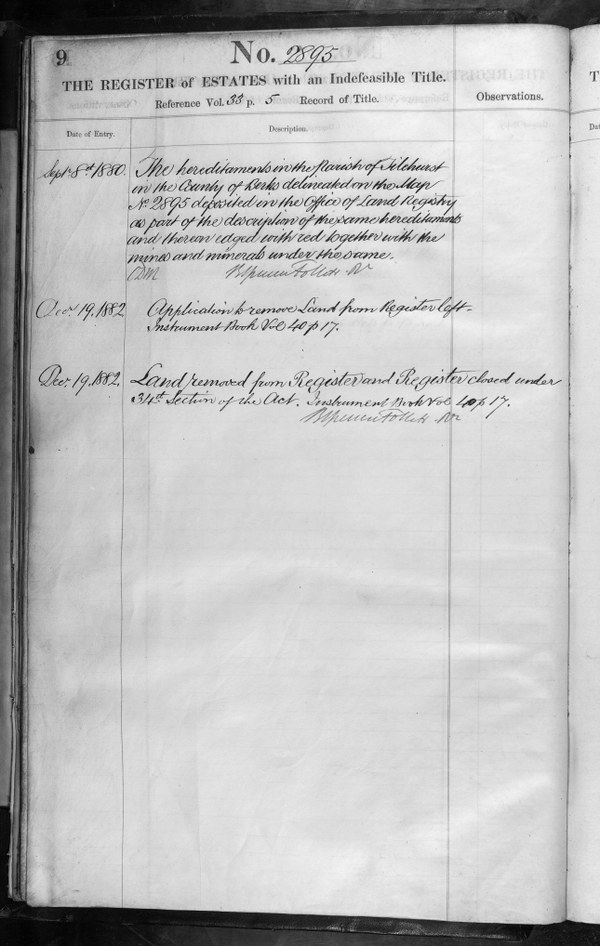 9
No. 2895
THE REGISTER of ESTATES with an Indefeasible Title.
Reference Vol. 33 p. 5 Record of Title.
Observations.
Date of Entry.
Description.
Sept. 8th 1880.
The hereditaments in the Parish of Tilehurst
in the County of Berks delineated on the Map
No 2895 deposited in the Office of Land Registry
as part of the description of the same hereditaments
and thereon edged with red together with the
mines and minerals under the same.
Brent Spencer Follett Rr
Decr 19. 1882
Application to remove Land from Register left-
Instrument Book Vol 40 p 17.
Decr 19. 1882.
Land removed from Register and Register closed under
34th Section of the Act. Instrument Book Vol 40 p 17.